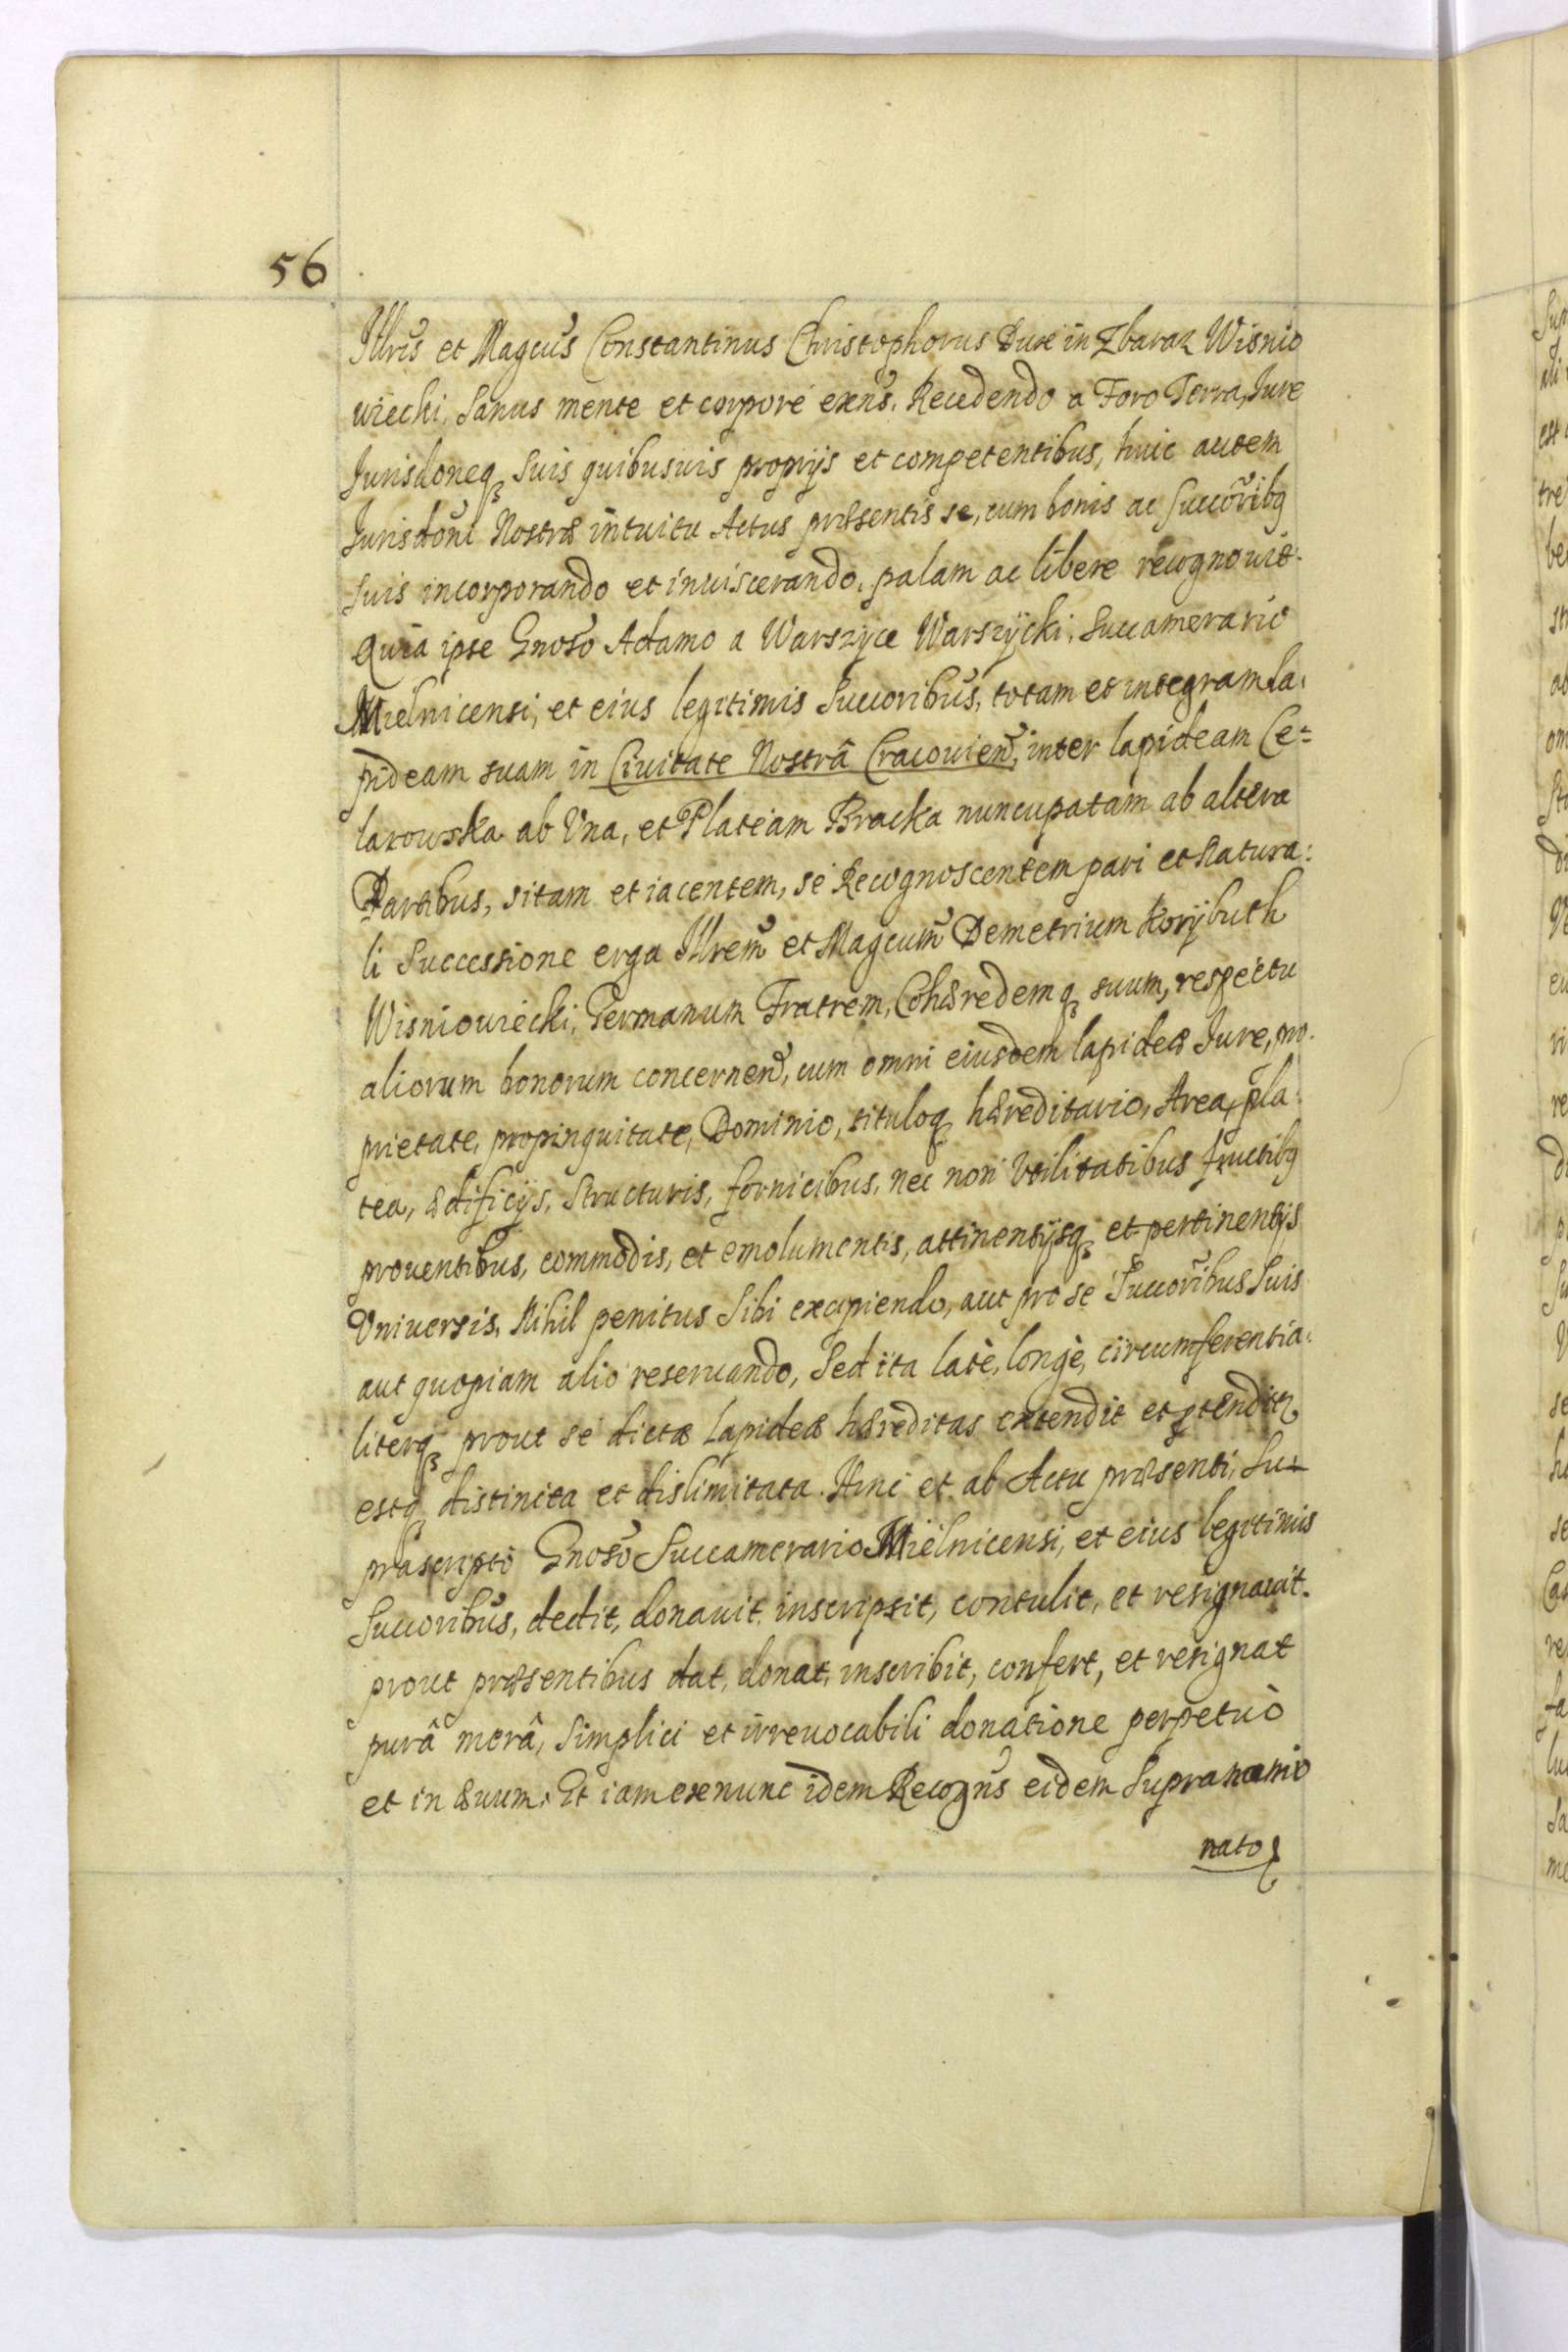 56
Jllris et Magcus Constantinus Christophorus Dux in Zbaraz Wisnio
wiecki, Sanus mente et corpore exns. Recedendo a Foro Terra, Iure
Jurisdoneq₃ Suis quibusuis proprijs et competentibus, huic autem
Jurisdoni Nostræ intuitu Actus præsentis se, cum bonis ac Succoribq
suis incorporando et inuiscerando, palam ac libere recognouit.
Quia ipse Gnoso Adamo a Warszyce Warszÿcki, Succamerario
Mielnicensi, et eius legitimis Succoribus, totam et integram La.
pideam suam in Ciuitate Nostrâ Cracouien, inter lapideam Ce=
larowska ab Vna, et Plateam Bracka nuncupatam ab altera
Partibus, sitam et iacentem, se Recognoscentem pari et Natura:
li Successione erga Jllrem et Magcum Demetrium Korÿbuth
Wisniowiecki, Germanum Fratrem, Cohæredemq₃ suum, respectu
aliorum bonorum concernen, cum omni eiusdem lapideæ Jure, pro.
prietate, propinquitate, Dominio, tituloq₃ hæreditario, Area, pla:
tea, ædificijs, Structuris, fornicibus, nec non Vtilitatibus fructibq
prouentibus, commodis, et emolumentis, attinentijsq₃ et pertinentijs
Vniuersis, Nihil penitus Sibi excipiendo, aut pro se Succoribus Suis
aut quopiam alio reseruando, Sed ita latè, longè, circumferentia:
literq₃ prout se dictæ Lapideæ hæreditas extendit et ptenditr
estq₃ distincta et dislimitata. Hinc et ab Actu præsenti, Su=
prascripto Gnoso Succamerario Mielnicensi, et eius legitimis
Succoribus, dedit, donauit, inscripsit, contulit, et resignauit.
prout præsentibus dat, donat, inscribit, confert, et resignat
purâ merâ, Simplici et irreuocabili donatione perpetuò
et in æuum. Et iam exnunc idem Recogns eidem Supranomi
nato